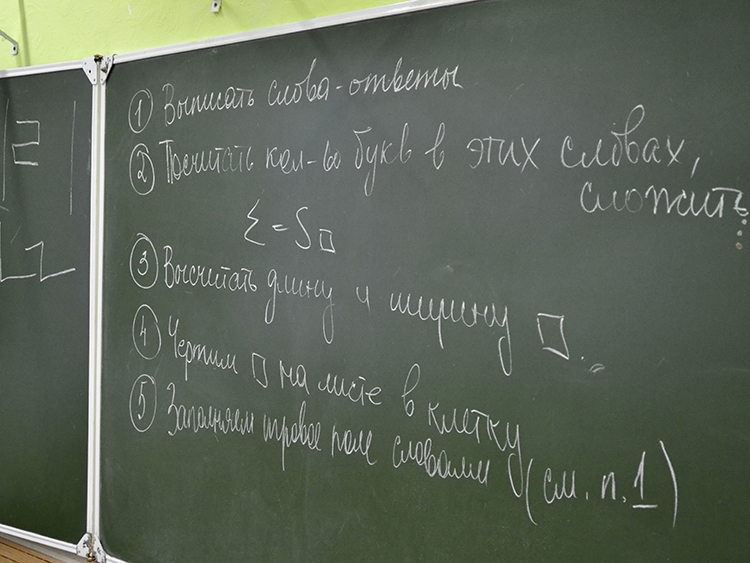 ① Выписать слова-ответы
② Посчитать кол-во букв в этих словах,
сложить
Σ = S□
③ Высчитать длину и ширину □.
④ Чертим □ на листе в клетку
⑤ Заполняем игровое поле словами (см. п. 1)